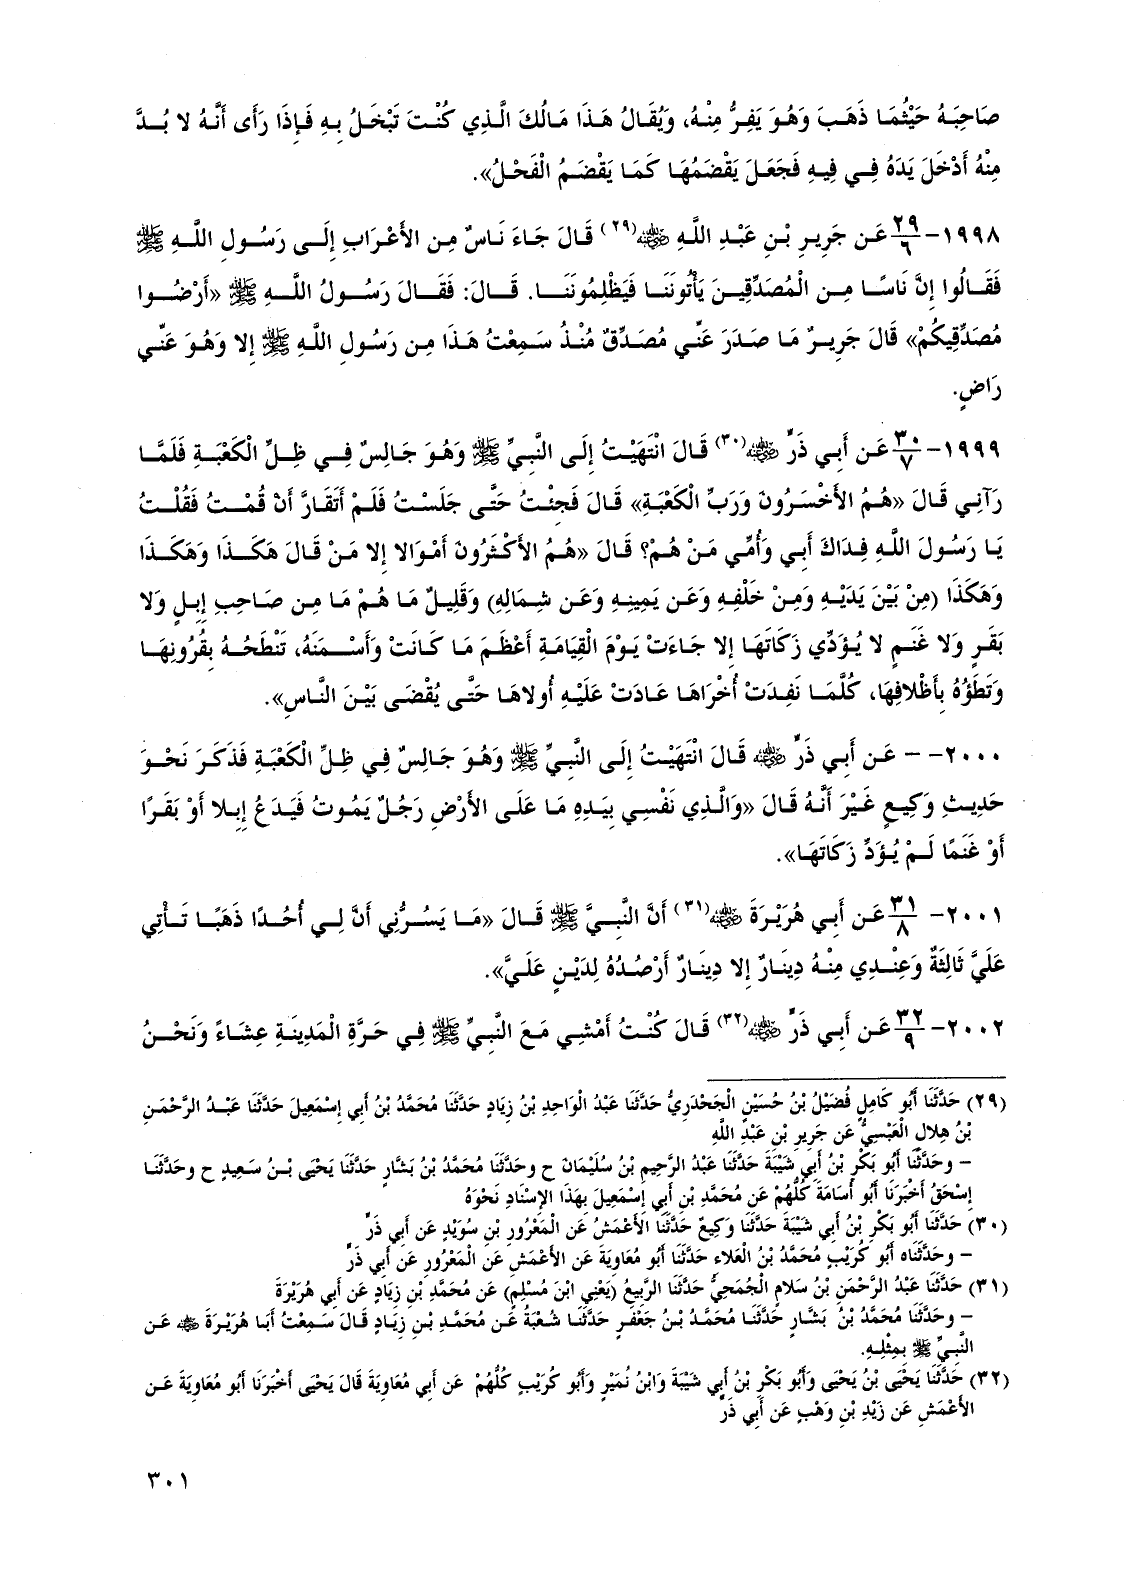 صَاحِبَهُ حَيْثُمَا ذَهَبَ وَهُوَ يَفِرُّ مِنْهُ، وَيُقَالُ هَذَا مَالُكَ الَّذِي كُنْتَ تَبْخَلُ بِهِ فَإِذَا رَأَى أَنَّهُ لا بُدَّ
مِنْهُ أَدْخَلَ يَدَهُ فِي فِيهِ فَجَعَلَ يَقْضَمُهَا كَمَا يَقْضَمُ الْفَحْلُ».
١٩٩٨- ٢٩/٦ عَن جَرِيرِ بْنِ عَبْدِ اللَّهِ ﷺ(٢٩) قَالَ جَاءَ نَاسٌ مِن الأَعْرَابِ إِلَى رَسُولِ اللَّهِ ﷺ
فَقَالُوا إِنَّ نَاسًا مِن الْمُصَدِّقِينَ يَأْتُونَنَا فَيَظْلِمُونَنَا. قَالَ: فَقَالَ رَسُولُ اللَّهِ ﷺ «أَرْضُوا
مُصَدِّقِيكُمْ» قَالَ جَرِيرٌ مَا صَدَرَ عَنِّي مُصَدِّقٌ مُنْذُ سَمِعْتُ هَذَا مِن رَسُولِ اللَّهِ ﷺ إِلا وَهُوَ عَنِّي
رَاضٍ.
١٩٩٩- ٣٠/٧ عَن أَبِي ذَرٍّ ﵁(٣٠) قَالَ انْتَهَيْتُ إِلَى النَّبِيِّ ﷺ وَهُوَ جَالِسٌ فِي ظِلِّ الْكَعْبَةِ فَلَمَّا
رَآنِي قَالَ «هُمُ الأَخْسَرُونَ وَرَبِّ الْكَعْبَةِ» قَالَ فَجِئْتُ حَتَّى جَلَسْتُ فَلَمْ أَتَقَارَّ أَنْ قُمْتُ فَقُلْتُ
يَا رَسُولَ اللَّهِ فِدَاكَ أَبِي وَأُمِّي مَنْ هُمْ؟ قَالَ «هُمُ الأَكْثَرُونَ أَمْوَالا إِلا مَنْ قَالَ هَكَذَا وَهَكَذَا
وَهَكَذَا (مِنْ بَيْنَ يَدَيْهِ وَمِنْ خَلْفِهِ وَعَن يَمِينِهِ وَعَن شِمَالِهِ) وَقَلِيلٌ مَا هُمْ مَا مِن صَاحِبِ إِبِلٍ وَلا
بَقَرٍ وَلا غَنَمٍ لا يُؤَدِّي زَكَاتَهَا إِلا جَاءَتْ يَوْمَ الْقِيَامَةِ أَعْظَمَ مَا كَانَتْ وَأَسْمَنَهُ، تَنْطَحُهُ بِقُرُونِهَا
وَتَطَؤُهُ بِأَظْلافِهَا، كُلَّمَا نَفِدَتْ أُخْرَاهَا عَادَتْ عَلَيْهِ أُولاهَا حَتَّى يُقْضَى بَيْنَ النَّاسِ».
٢٠٠٠- – عَن أَبِي ذَرٍّ ﵁ قَالَ انْتَهَيْتُ إِلَى النَّبِيِّ ﷺ وَهُوَ جَالِسٌ فِي ظِلِّ الْكَعْبَةِ فَذَكَرَ نَحْوَ
حَدِيثِ وَكِيعٍ غَيْرَ أَنَّهُ قَالَ «وَالَّذِي نَفْسِي بِيَدِهِ مَا عَلَى الأَرْضِ رَجُلٌ يَمُوتُ فَيَدَعُ إِبِلا أَوْ بَقَرًا
أَوْ غَنَمًا لَمْ يُؤَدِّ زَكَاتَهَا».
٢٠٠١- ٣١/٨ عَن أَبِي هُرَيْرَةَ ﵁(٣١) أَنَّ النَّبِيَّ ﷺ قَالَ «مَا يَسُرُّنِي أَنَّ لِي أُحُدًا ذَهَبًا تَأْتِي
عَلَيَّ ثَالِثَةٌ وَعِنْدِي مِنْهُ دِينَارٌ إِلا دِينَارٌ أَرْصُدُهُ لِدَيْنٍ عَلَيَّ».
٢٠٠٢- ٣٢/٩ عَن أَبِي ذَرٍّ ﵁(٣٢) قَالَ كُنْتُ أَمْشِي مَعَ النَّبِيِّ ﷺ فِي حَرَّةِ الْمَدِينَةِ عِشَاءً وَنَحْنُ
(٢٩) حَدَّثَنَا أَبُو كَامِلٍ فُضَيْلُ بْنُ حُسَيْنٍ الْجَحْدَرِيُّ حَدَّثَنَا عَبْدُ الْوَاحِدِ بْنُ زِيَادٍ حَدَّثَنَا مُحَمَّدُ بْنُ أَبِي إِسْمَعِيلَ حَدَّثَنَا عَبْدُ الرَّحْمَنِ
بْنُ هِلالٍ الْعَبْسِيُّ عَن جَرِيرِ بْنِ عَبْدِ اللَّهِ
– وحَدَّثَنَا أَبُو بَكْرِ بْنُ أَبِي شَيْبَةَ حَدَّثَنَا عَبْدُ الرَّحِيمِ بْنُ سُلَيْمَانَ ح وحَدَّثَنَا مُحَمَّدُ بْنُ بَشَّارٍ حَدَّثَنَا يَحْيَى بْنُ سَعِيدٍ ح وحَدَّثَنَا
إِسْحَقُ أَخْبَرَنَا أَبُو أُسَامَةَ كُلُّهُمْ عَن مُحَمَّدِ بْنِ أَبِي إِسْمَعِيلَ بِهَذَا الإِسْنَادِ نَحْوَهُ
(٣٠) حَدَّثَنَا أَبُو بَكْرِ بْنُ أَبِي شَيْبَةَ حَدَّثَنَا وَكِيعٌ حَدَّثَنَا الأَعْمَشُ عَن الْمَعْرُورِ بْنِ سُوَيْدٍ عَن أَبِي ذَرٍّ
– وحَدَّثَنَاه أَبُو كُرَيْبٍ مُحَمَّدُ بْنُ الْعَلاءِ حَدَّثَنَا أَبُو مُعَاوِيَةَ عَن الأَعْمَشِ عَن الْمَعْرُورِ عَن أَبِي ذَرٍّ
(٣١) حَدَّثَنَا عَبْدُ الرَّحْمَنِ بْنُ سَلامٍ الْجُمَحِيُّ حَدَّثَنَا الرَّبِيعُ (يَعْنِي ابْنَ مُسْلِمٍ) عَن مُحَمَّدِ بْنِ زِيَادٍ عَن أَبِي هُرَيْرَةَ
– وحَدَّثَنَا مُحَمَّدُ بْنُ بَشَّارٍ حَدَّثَنَا مُحَمَّدُ بْنُ جَعْفَرٍ حَدَّثَنَا شُعْبَةُ عَن مُحَمَّدِ بْنِ زِيَادٍ قَالَ سَمِعْتُ أَبَا هُرَيْرَةَ ﵁ عَن
النَّبِيِّ ﷺ بِمِثْلِهِ.
(٣٢) حَدَّثَنَا يَحْيَى بْنُ يَحْيَى وَأَبُو بَكْرِ بْنُ أَبِي شَيْبَةَ وَابْنُ نُمَيْرٍ وَأَبُو كُرَيْبٍ كُلُّهُمْ عَن أَبِي مُعَاوِيَةَ قَالَ يَحْيَى أَخْبَرَنَا أَبُو مُعَاوِيَةَ عَن
الأَعْمَشِ عَن زَيْدِ بْنِ وَهْبٍ عَن أَبِي ذَرٍّ
٣٠١